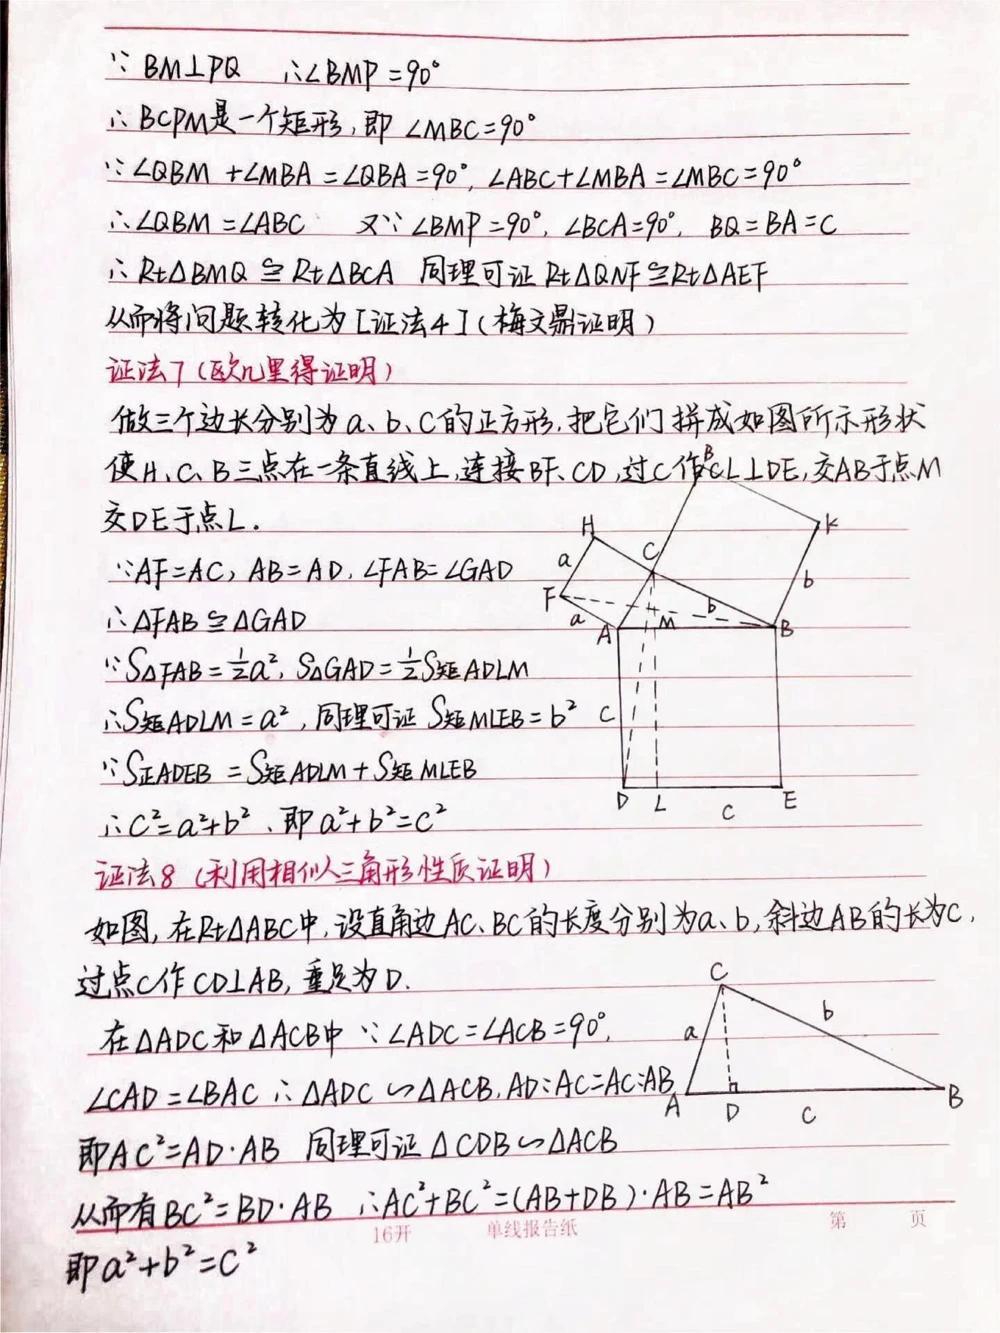 ∵ BM⊥PQ ∴∠BMP=90°
∴BCPM是一个矩形,即 ∠MBC=90°
∵∠QBM+∠MBA=∠QBA=90°,∠ABC+∠MBA=∠MBC=90°
∴∠QBM=∠ABC 又∵∠BMP=90°,∠BCA=90°, BQ=BA=C
∴Rt△BMQ≌Rt△BCA 同理可证 Rt△QNF≌Rt△AEF
从而将问题转化为[证法4](梅文鼎证明)
证法7(欧几里得证明)
做三个边长分别为a、b、C的正方形.把它们拼成如图所示形状
使H、C、B三点在一条直线上,连接BF、CD,过C作CL⊥DE,交AB于点M
交DE于点L.
∵AF=AC,AB=AD,∠FAB=∠GAD
∴△FAB≌△GAD
∵S△FAB=½a²,S△GAD=½S矩ADLM
∴S矩ADLM=a²,同理可证 S矩MLEB=b²
∵S正ADEB=S矩ADLM+S矩MLEB
∴C²=a²+b²、即a²+b²=c²
B
H
K
C
a
b
F
b
a
A
M
B
C
D
L
E
C
证法8(利用相似三角形性质证明)
如图,在Rt△ABC中,设直角边AC、BC的长度分别为a、b,斜边AB的长为C,
过点C作CD⊥AB,垂足为D.
在△ADC和△ACB中 ∵∠ADC=∠ACB=90°,
∠CAD=∠BAC ∴△ADC∽△ACB,AD:AC=AC:AB
即AC²=AD·AB 同理可证△CDB∽△ACB
从而有BC²=BD·AB ∴AC²+BC²=(AB+DB)·AB=AB²
即a²+b²=c²
C
a
b
A
D
C
B
16开 单线报告纸 第 页